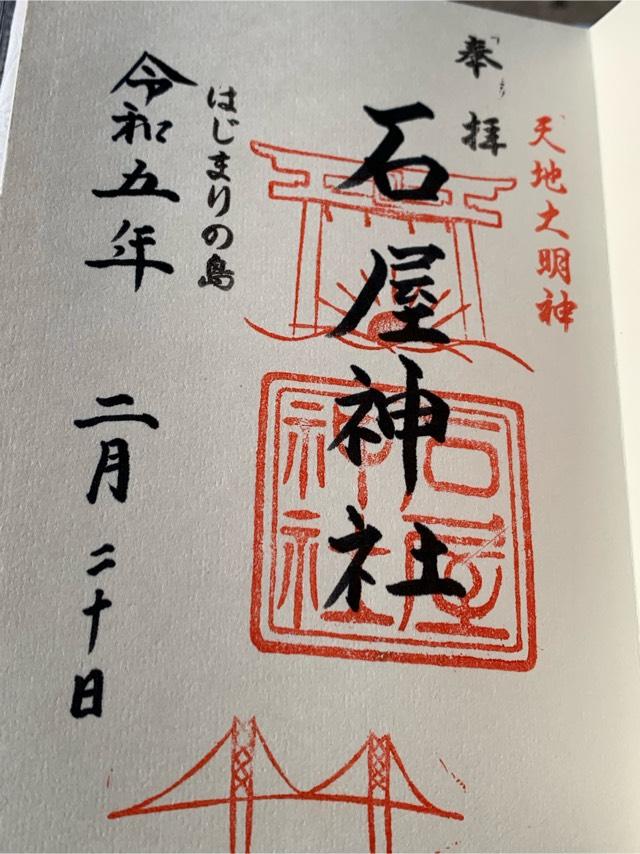 天地大明神
奉拝
石屋神社
石屋
神社
はじまりの島
令和五年 二月 二十日